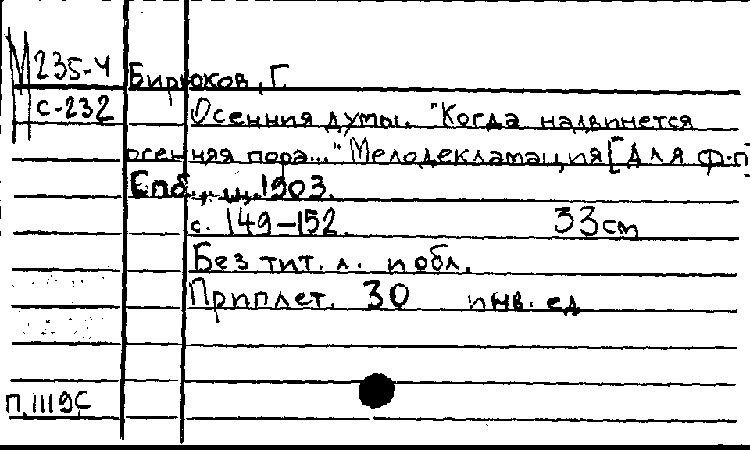 М 235-4
Бирюков, Г.
С-232
Осенния думы. "Когда надвинется
осенняя пора..." Мелодекламация [для ф-п]
Спб., ц. 1903.
с. 149-152. 33 cm
Без тит. л. и обл.
Приплет. 30 инв. ед
П 1119С